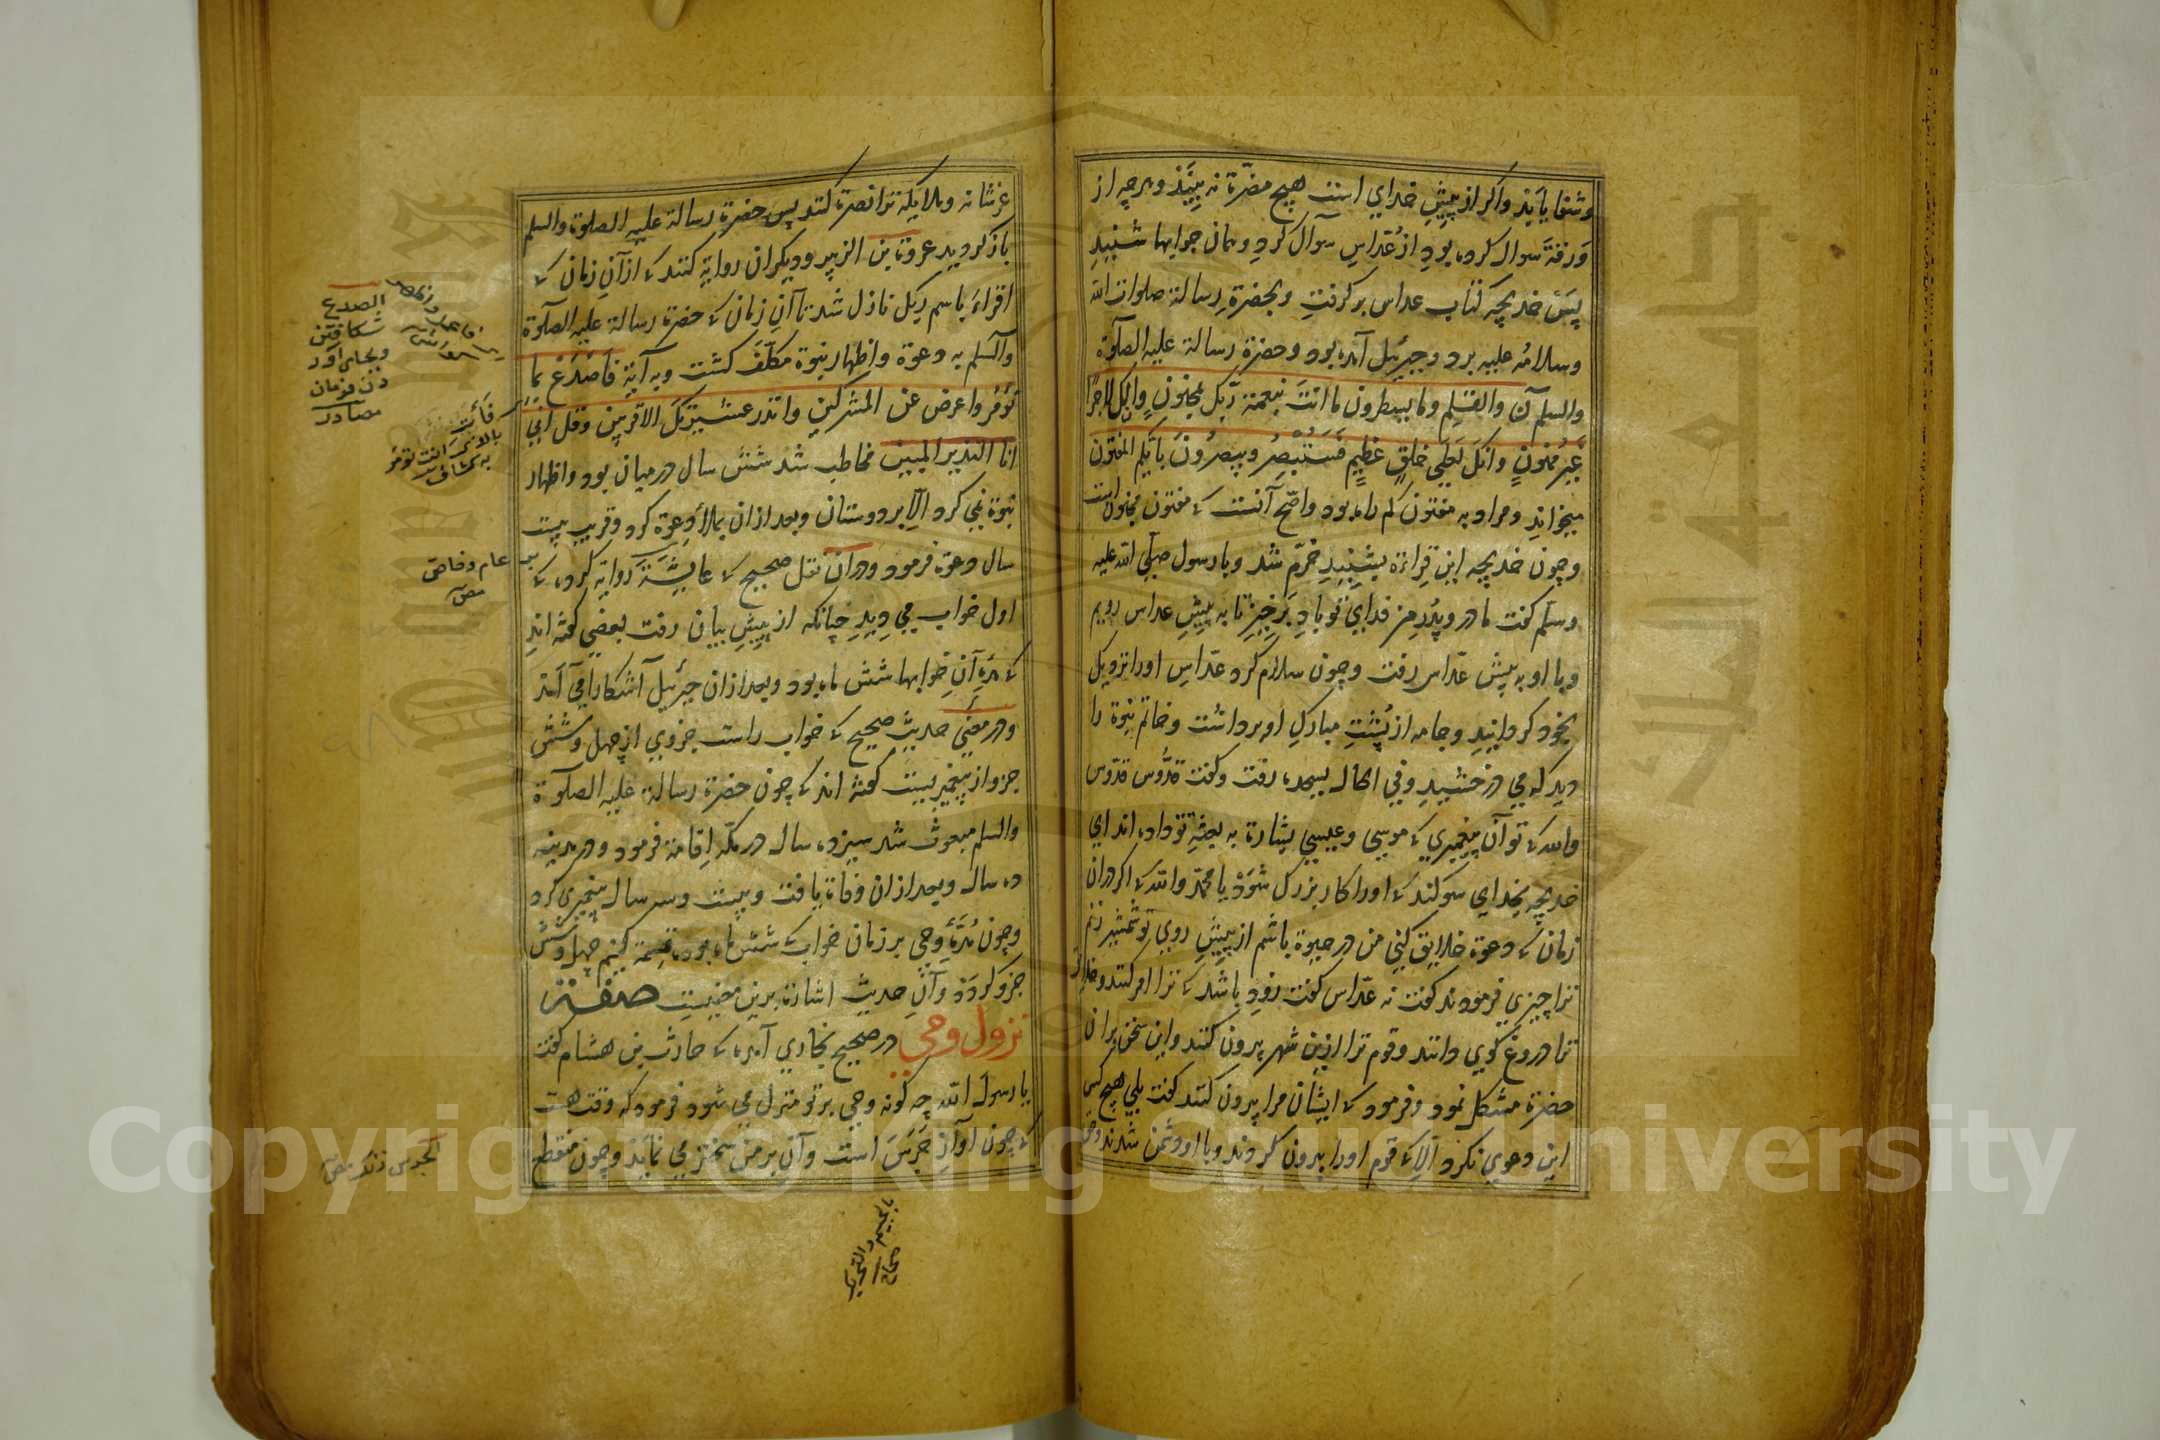 وشفا یابد واکر از پیش خدای است هیچ مضرة نه بیند وهرچه از
ورقة سوال کرده بود از عداس سوال کرد وهمان جوابها شنید
پس خدیجه کتاب عداس برکرفت وبحضرة رسالة صلوات الله
وسلامه علیه برد وجبرئیل آمده بود وحضرة رسالة علیه الصلوة
والسلم آن والقلم وما یسطرون ما انت بنعمة ربک بمجنون وان لک لاجرا
غیر ممنون وانک لعلی خلق عظیم فستبصر ویبصرون بایکم المفتون
میخواند ومراد به مفتون کم راه بود واصح آنست که مفتون مجنون است
وچون خدیجه این قراءة بشنید خرم شد وبا رسول صلی الله علیه
وسلم کفت مادر وپدر من فدای تو باد برخیز تا به پیش عداس رویم
وبا او به پیش عداس رفت وچون سلام کرد عداس اورا نزدیک
بخود کردانید وجامه از پشت مبارک او برداشت وخاتم نبوة را
دید که می درخشید وفی الحال بسجده رفت وکفت قدوس قدوس
والله که تو آن پیغمبری که موسی وعیسی بشارة به بعثة تو داده اند ای
خدیجه بخدای سوکند که اورا کار بزرک شود یا محمد والله که اکر دران
زمان که دعوة خلایق کنی من در حیوة باشم از پیش روی تو شمشیر زنم
ترا چیزی فرمودند کفت نه عداس کفت زود باشد که ترا امر کنند وخلایق
ترا دروغ کوی دانند وقوم ترا ازین شهر بیرون کنند واین سخن بران
حضرة مشکل نمود وفرمود که ایشان مرا بیرون کنند کفت بلی هیچ کس
این دعوی نکرد الا که قوم اورا بیرون کردند وبا او دشمن شدند
عز شانه وملایکه ترا نصرة کنند پس حضرة رسالة علیه الصلوة والسلم
باز کردید عروة بن الزبیر ودیکران روایة کنند که از آن زمان که
اقراء باسم ربک نازل شد تا آن زمان که حضرة رسالة علیه الصلوة
والسلم به دعوة واظهار نبوة مکلف کشت وبه آیة فاصدع بما
تؤمر واعرض عن المشرکین وانذر عشیرتک الاقربین وقل انی
انا النذیر المبین مخاطب شد شش سال درمیان بود واظهار
نبوة نمی کرد الا بر دوستان وبعد ازان بملأ دعوة کرد وقریب بیست
سال دعوة فرمود ودران نقل صحیح که عایشة روایة کرده که
اول خواب می دید چنانکه از پیش بیان رفت بعضی کفته اند
که مدة آن خوابها شش ماه بود وبعد ازان جبرئیل آشکارا می آمد
ودر معنی حدیث صحیح که خواب راست جزوی از چهل وشش
جزو از پیغمبریست کفته اند که چون حضرة رسالة علیه الصلوة
والسلم مبعوث شد سیزده سال در مکه اقامة فرمود ودر مدینه
ده سال وبعد ازان وفاة یافت وبیست وسه سال پیغمبری کرد
وچون مدة وحی بر زمان خواب که شش ماه بود قسمة کنیم چهل وشش
جزو کردد وآن حدیث اشارة برین معنیست صفة
نزول وحی در صحیح بخاری آمده که حارث بن هشام کفت
یا رسول الله چه کونه وحی بر تو منزل می شود فرمود که وقت هست
که چون آواز جرس است وآن بر من سختر می نماید وچون منقطع
الصدع
شکافتن
وبجای آورد
دن فرمان
مصادر
عام وخاص
Copyright © King Saud University
جامعة الملك سعود